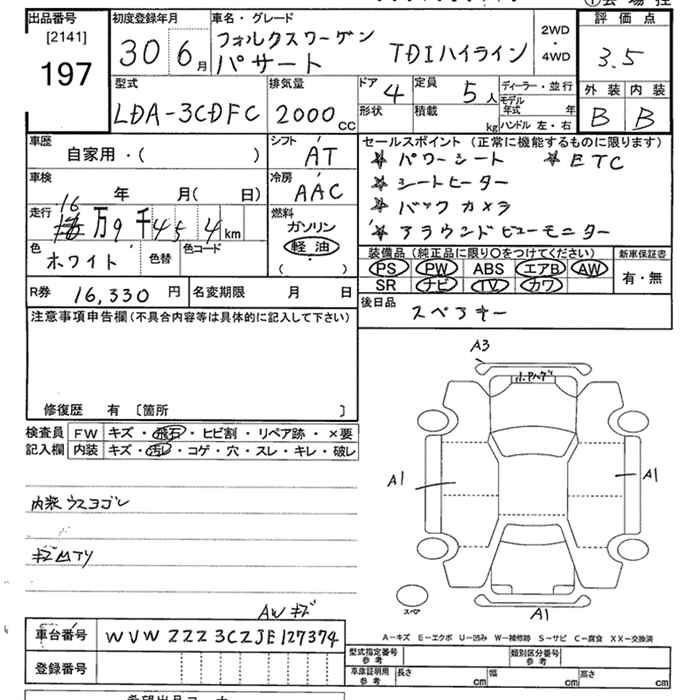 出品番号 [2141] 197
初度登録年月 30 6月
車名・グレード フォルクスワーゲン パサート TDIハイライン
2WD・4WD
評価点 3.5
外装 B 内装 B
型式 LDA-3CDFC
排気量 2000cc
ドア 4 定員 5人
形状 積載 kg
ディーラー・並行
モデル年式 年
ハンドル 左・右
車歴 自家用・( )
シフト AT
車検 年 月( 日)
冷房 AAC
走行 16万9千454km
燃料 ガソリン 軽油 ( )
色 ホワイト 色替 色コード
セールスポイント (正常に機能するものに限ります)
☆ パワーシート ☆ ETC
☆ シートヒーター
☆ バックカメラ
☆ アラウンドビューモニター
装備品 (純正品に限り○をつけてください) 新車保証書
PS PW ABS エアB AW 有・無
SR ナビ TV カワ
R券 16,330円 名変期限 月 日
後日品 スペアキー
注意事項申告欄 (不具合内容等は具体的に記入して下さい)
修復歴 有 〔箇所 〕
検査員 FW キズ・飛石・ヒビ割・リペア跡・×要
記入欄 内装 キズ・汚レ・コゲ・穴・スレ・キレ・破レ
内装ウスヨゴレ
AWキズ
A3
A1
A1
スペア
A1
A-キズ E-エクボ U-凹み W-補修跡 S-サビ C-腐食 XX-交換済
車台番号 WVWZZZ3CZJE127374
登録番号
型式指定番号 参考 類別区分番号 参考
車庫証明用 参考 長さ cm 幅 cm 高さ cm